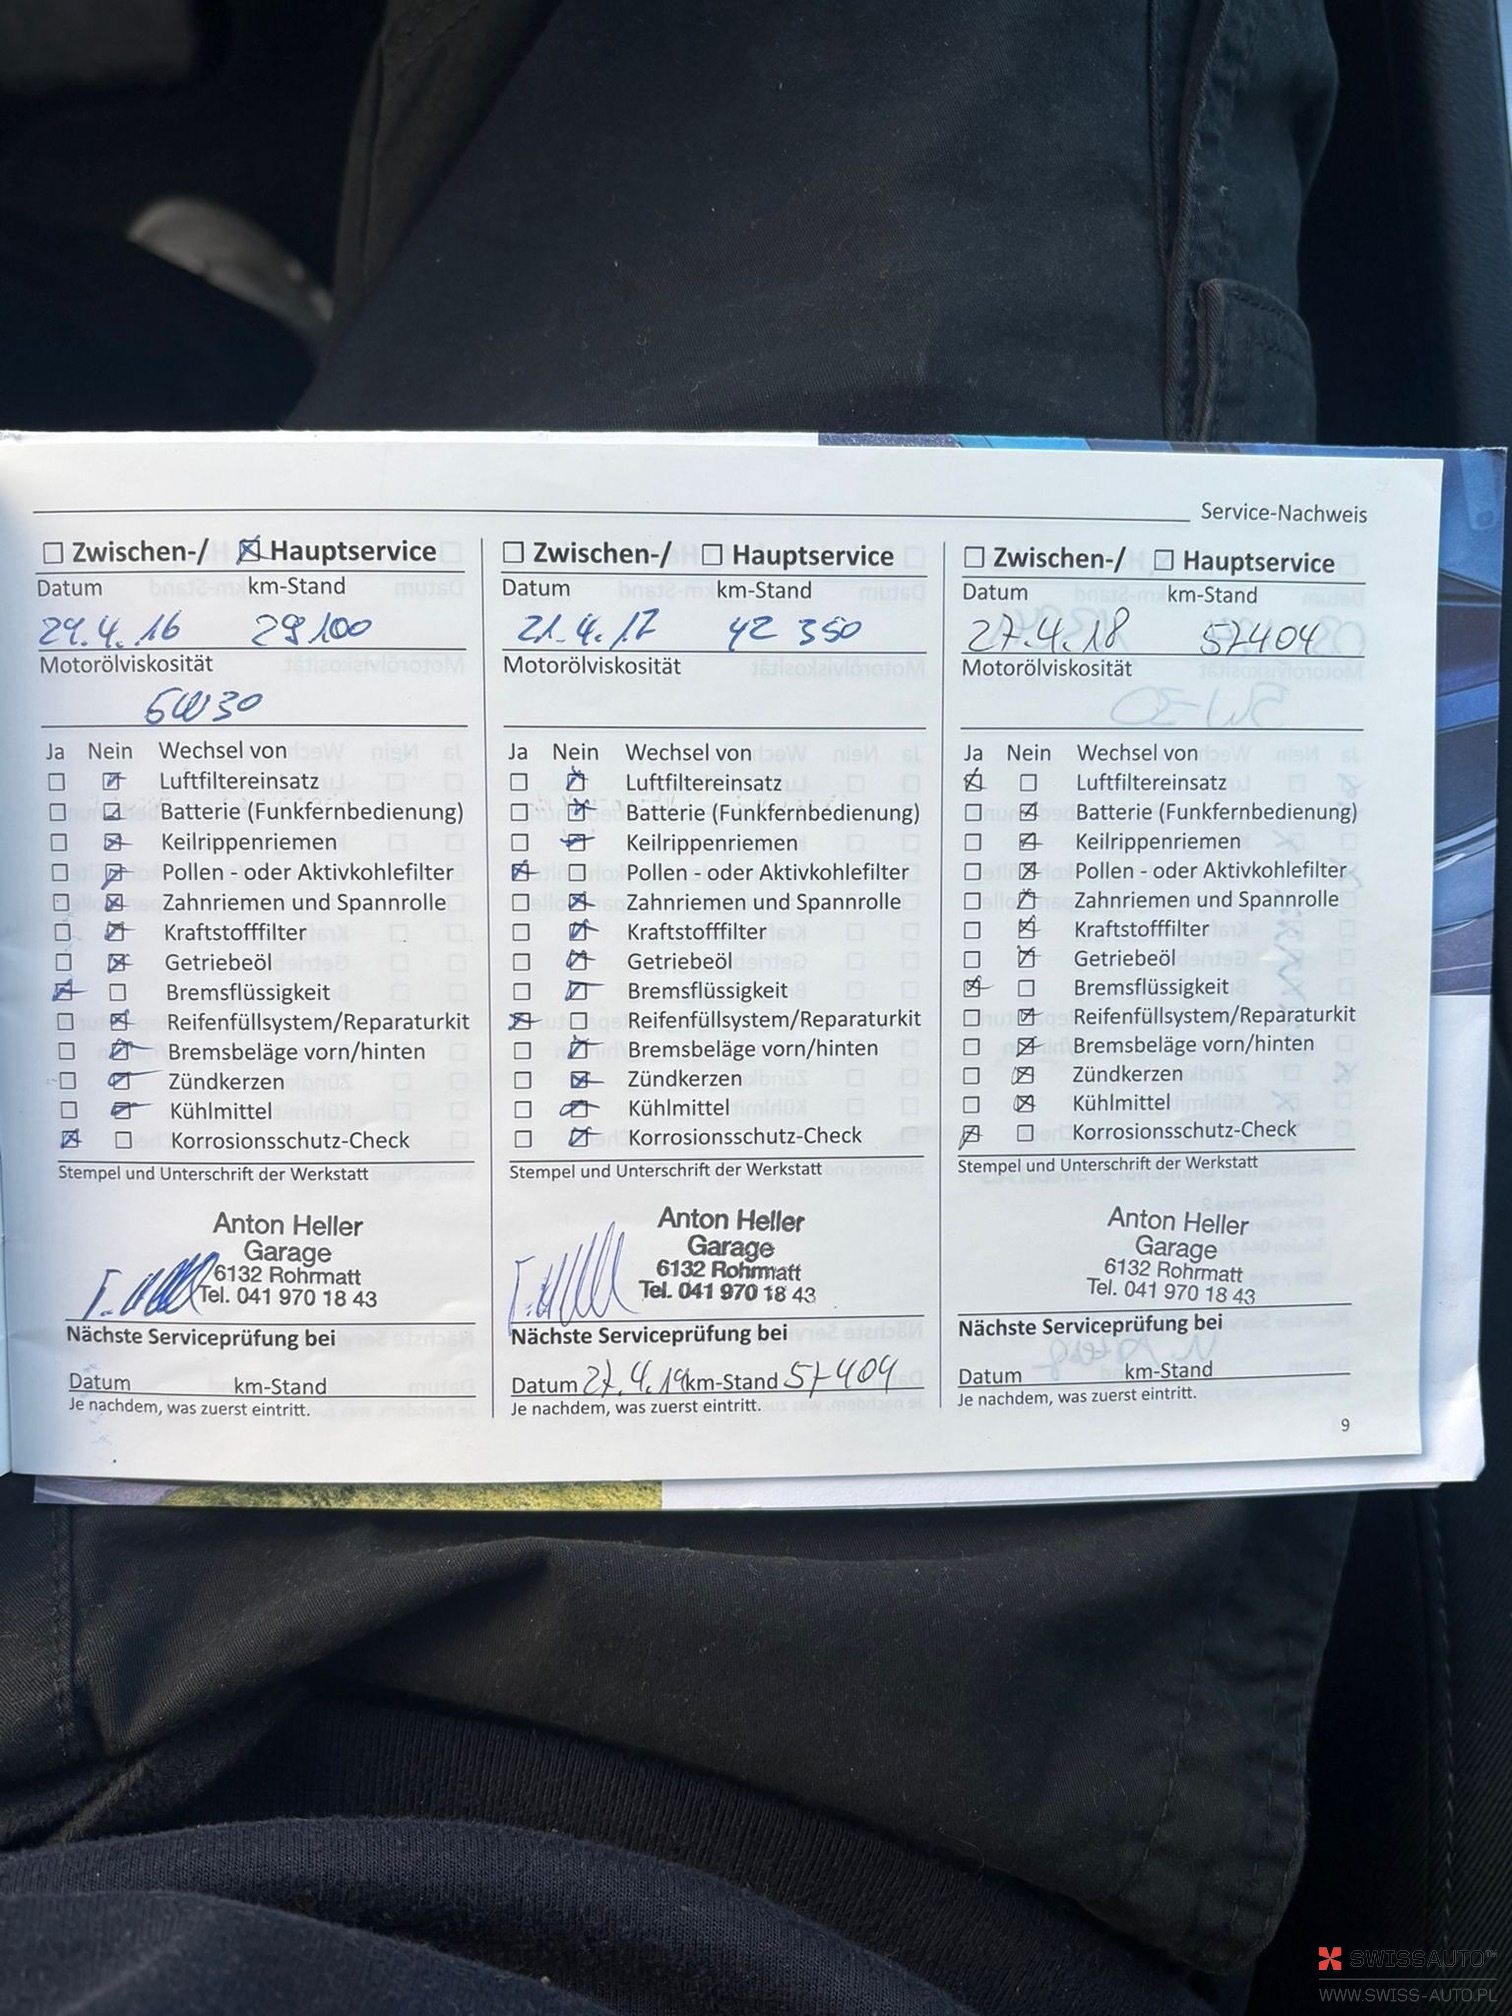 Service-Nachweis
Zwischen-/ Hauptservice
Datum km-Stand
29.4.16 29100
Motorölviskosität
5W30
Ja Nein Wechsel von
Luftfiltereinsatz
Batterie (Funkfernbedienung)
Keilrippenriemen
Pollen - oder Aktivkohlefilter
Zahnriemen und Spannrolle
Kraftstofffilter
Getriebeöl
Bremsflüssigkeit
Reifenfüllsystem/Reparaturkit
Bremsbeläge vorn/hinten
Zündkerzen
Kühlmittel
Korrosionsschutz-Check
Stempel und Unterschrift der Werkstatt
Anton Heller
Garage
6132 Rohrmatt
Tel. 041 970 18 43
Nächste Serviceprüfung bei
Datum km-Stand
Je nachdem, was zuerst eintritt.
Zwischen-/ Hauptservice
Datum km-Stand
21.4.17 42 350
Motorölviskosität
Ja Nein Wechsel von
Luftfiltereinsatz
Batterie (Funkfernbedienung)
Keilrippenriemen
Pollen - oder Aktivkohlefilter
Zahnriemen und Spannrolle
Kraftstofffilter
Getriebeöl
Bremsflüssigkeit
Reifenfüllsystem/Reparaturkit
Bremsbeläge vorn/hinten
Zündkerzen
Kühlmittel
Korrosionsschutz-Check
Stempel und Unterschrift der Werkstatt
Anton Heller
Garage
6132 Rohrmatt
Tel. 041 970 18 43
Nächste Serviceprüfung bei
Datum 27.4.19 km-Stand 57404
Je nachdem, was zuerst eintritt.
Zwischen-/ Hauptservice
Datum km-Stand
27.4.18 57404
Motorölviskosität
Ja Nein Wechsel von
Luftfiltereinsatz
Batterie (Funkfernbedienung)
Keilrippenriemen
Pollen - oder Aktivkohlefilter
Zahnriemen und Spannrolle
Kraftstofffilter
Getriebeöl
Bremsflüssigkeit
Reifenfüllsystem/Reparaturkit
Bremsbeläge vorn/hinten
Zündkerzen
Kühlmittel
Korrosionsschutz-Check
Stempel und Unterschrift der Werkstatt
Anton Heller
Garage
6132 Rohrmatt
Tel. 041 970 18 43
Nächste Serviceprüfung bei
Datum km-Stand
Je nachdem, was zuerst eintritt.
9
SWISSAUTO™
WWW.SWISS-AUTO.PL